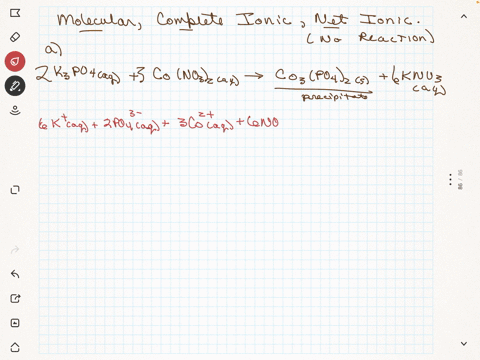 Molecular, Complete Ionic, Net Ionic.
(No Reaction)
a)
2K3PO4(aq) + 3Co(NO3)2(aq) → Co3(PO4)2(s) + 6KNO3(aq)
precipitate
6K+(aq) + 2PO4 3-(aq) + 3Co 2+(aq) + 6NO